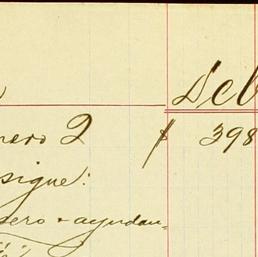 Deb
nero 2 $ 398
sigue:
sero + ayudan-